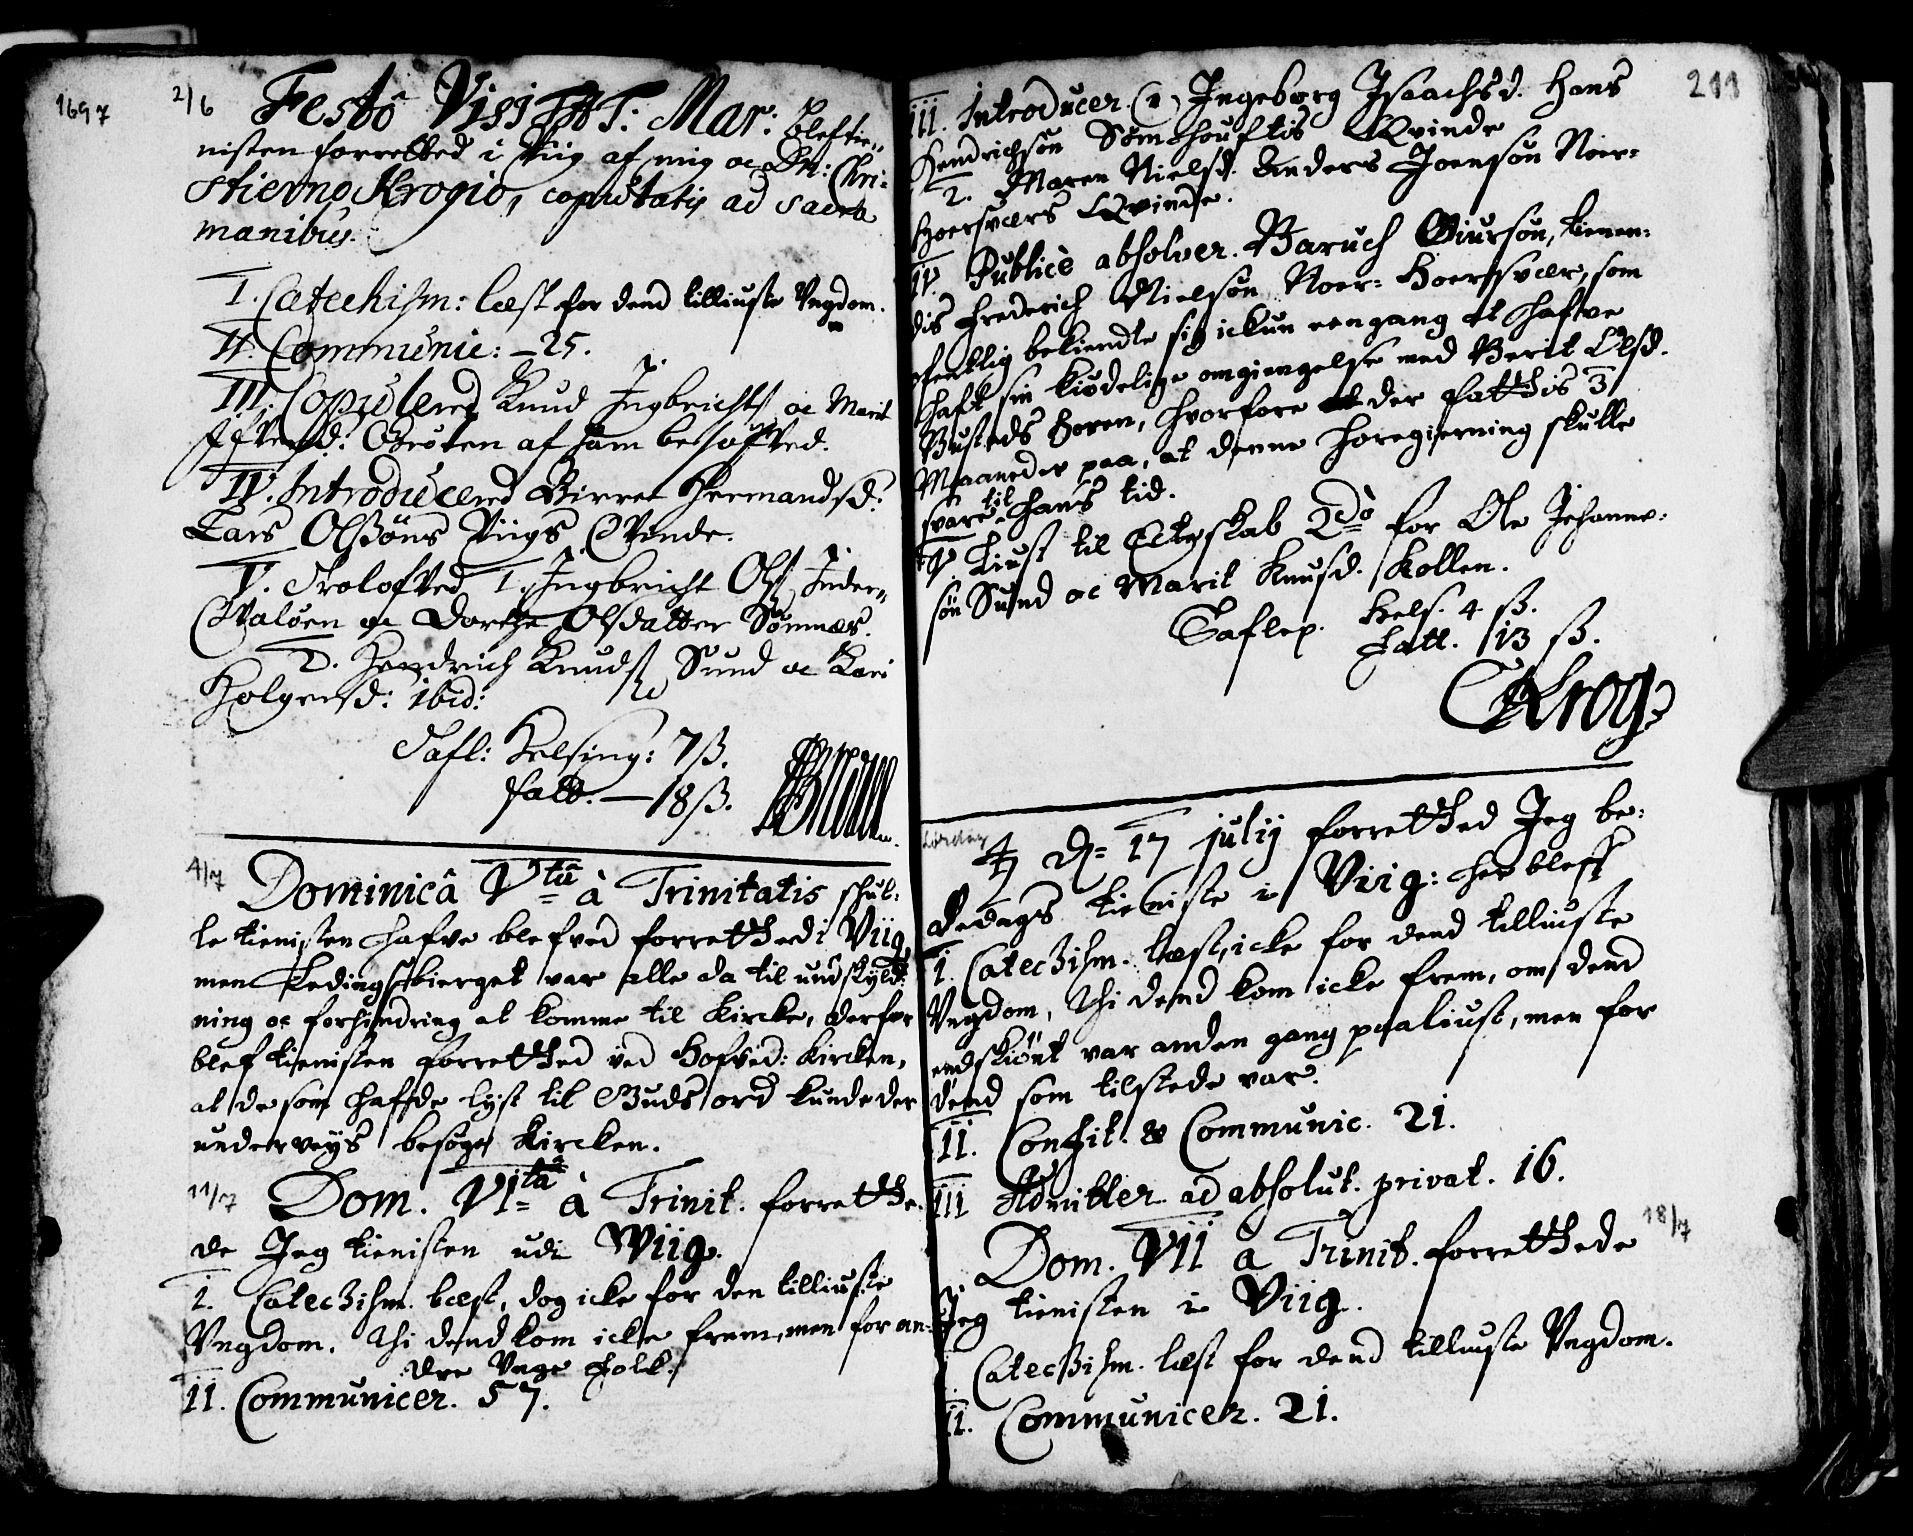 1697
2/6 Festô Visitat: Mar: blef tie-
nisten forretted i Viig af mig oc Dn: Chri-
stierno Krogio, coputatis ad sacra
manibus.
I. Catechism: læst for dend tilliuste Ungdom.
II. Communic: – 25.
III. Copulered Knud Ingbrichts oc Marit
Iffversd: Grøten af ham besofved.
IV. Introducered Birret Hermandsd:
Lars Olssøns Viigs Qvinde.
V. Trolofved 1. Ingbricht Ols. Inder-
Qvaløen oc Dorthe Olsdatter Sømnæs.
2. Hendrich Knuds. Sund oc Kari
Holgersd: ibid:
Tafl: Helsing: 7 ß.
Fatt. – 18 ß.
4/7 Dominicâ Vtâ à Trinitatis skul-
le tienisten hafve blefved forretthed i Viig,
men Ledingsbierget var alle da til undskyld-
ning oc forhindring at komme til Kircke, derfor
blef tienisten forretthed ved Hofved: Kircken,
at de som hafde lyst til Guds ord kunde der
underveys besøge Kircken.
11/7 Dom. VItâ à Trinit. forretthe-
de Jeg tienisten udi Wiig.
I. Catechism. læst, dog icke for den tilliuste
Ungdom, thi dend kom icke frem, men for an-
dre Unge folck.
II. Communicer. 57.
211
III. Introducer. (1) Ingeborg Isaachsd. Hans
Hendrichsøn Sømshouftis Qvinde
2. Maren Nielsd. Anders Joensøn Noer-
Hoersværs Qvinde.
IV. Publicè absolver. Baruch Siursøn, tienen-
dis Frederich Nielsøn Noer-Hoersvær, som
ofentlig bekiendte sig ickun een gang at hafve
haft sin kiødelige omgiengelse med Berit Olsd.
Busteds horen, hvorfore der fatthis 3
Maaneder paa, at denne horegierning skulle
svare til hans tid.
V. Liust til Ecteskab 2dò for Ole Johanne-
søn Sund oc Marit Knusd. Kollen.
Taflep. Hels. 4 ß.
Fatt. 13 ß.
CKrog
Lørdag
♄ d= 17 julij forretthed Jeg be-
dedags tieniste i Viig: her bleff
I. Catechism. læst, icke for dend tilliuste
Ungdom, thi dend kom icke frem, om dend
endskiønt var anden gang paaliust, men for
dend som tilstede var.
II. Confit. & Communic. 21.
III Admitter ad absolut. privat. 16.
18/7
Dom. VII à Trinit. forretthede
Jeg tienisten i Viig.
I. Catechism. læst for dend tilliuste Ungdom.
II. Communicer. 21.